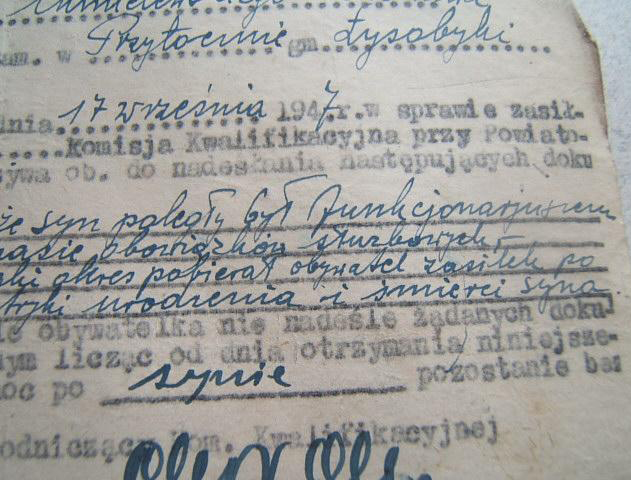 zam. w Przytocznie gm. Łysobyki
dnia 17 września 1947.r.w sprawie zasił-
Komisja Kwalifikacyjna przy Powiato-
ywa ob. do nadesłania następujących doku
że syn poległy był funkcjonariuszem
czasie obowiązków służbowych-
ski okres pobierał obywatel zasiłek po
tryki urodzenia i śmierci syna.
le obywatelka nie nadeśle żądanych doku-
ym licząc od dnia otrzymania niniejsze-
oc po synie pozostanie bez
odniczący Kom. Kwalifikacyjnej